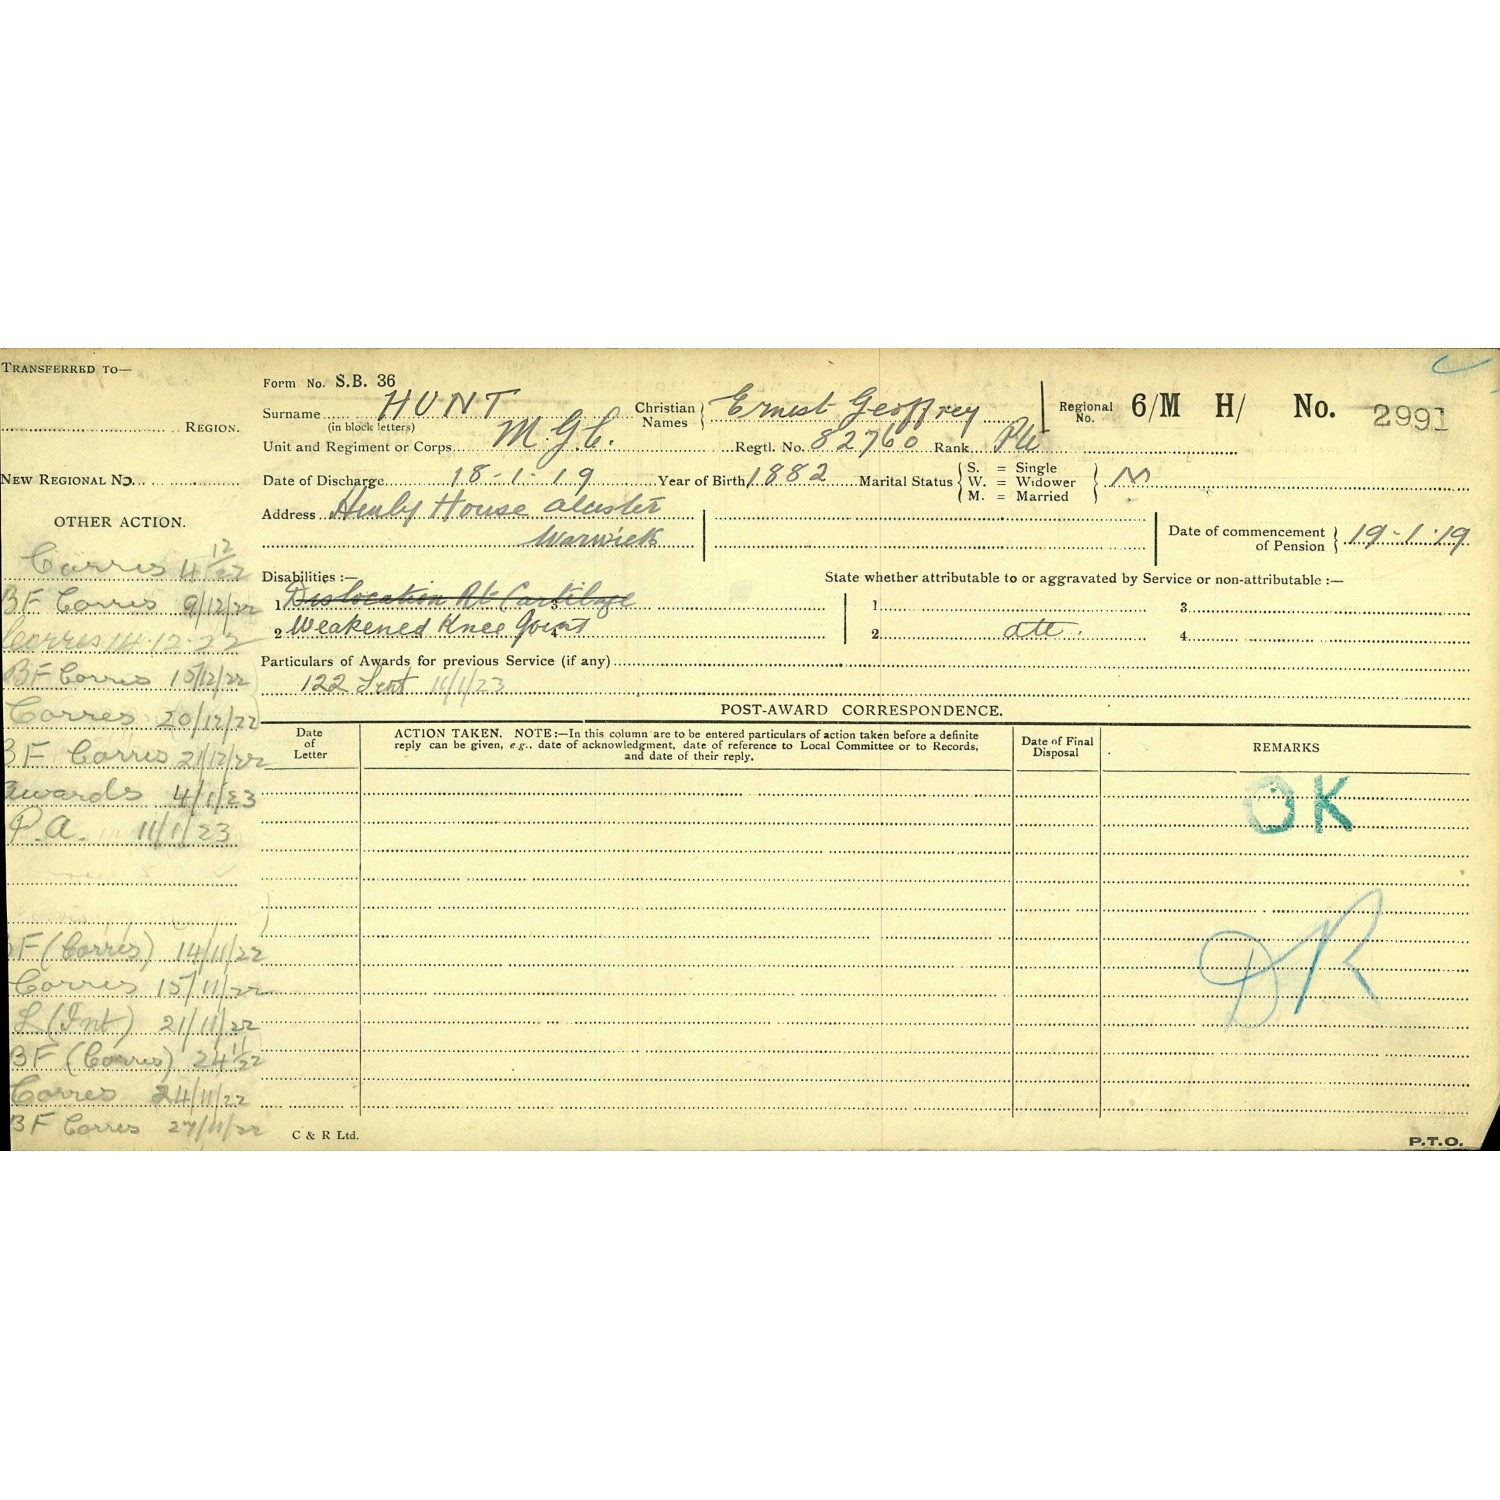 TRANSFERRED TO—
REGION.
NEW REGIONAL NO.
OTHER ACTION.
Corres 4 12/22
BF Corres 9/12/22
Corres 14.12.22
BF Corres 15/12/22
Corres 20/12/22
BF Corres 21/12/22
Awards 4/1/23
P.A. 11/1/23
BF (Corres) 14/11/22
Corres 15/11/22
L (Int) 21/11/22
BF (Corres) 24 11/22
Corres 24/11/22
BF Corres 27/11/22
Form No. S.B. 36
Surname HUNT Christian Names Ernest Geoffrey Regional No. 6/M H/ No. 2991
(in block letters)
Unit and Regiment or Corps M.G.C. Regtl. No. 82760 Rank Pte
Date of Discharge 18-1-19 Year of Birth 1882 Marital Status S. = Single W. = Widower M. = Married M
Address Henly House Alcester
Warwick
Date of commencement of Pension 19-1-19
Disabilities :— State whether attributable to or aggravated by Service or non-attributable :—
1 Dislocation Rt Cartilage 3 1. 3.
2 Weakened Knee Joint 4 2. att. 4.
Particulars of Awards for previous Service (if any)
122 Sent 11/1/23
POST-AWARD CORRESPONDENCE.
Date of Letter
ACTION TAKEN. NOTE :—In this column are to be entered particulars of action taken before a definite
reply can be given, e.g., date of acknowledgment, date of reference to Local Committee or to Records,
and date of their reply.
Date of Final Disposal
REMARKS
OK
DR
C & R Ltd.
P.T.O.